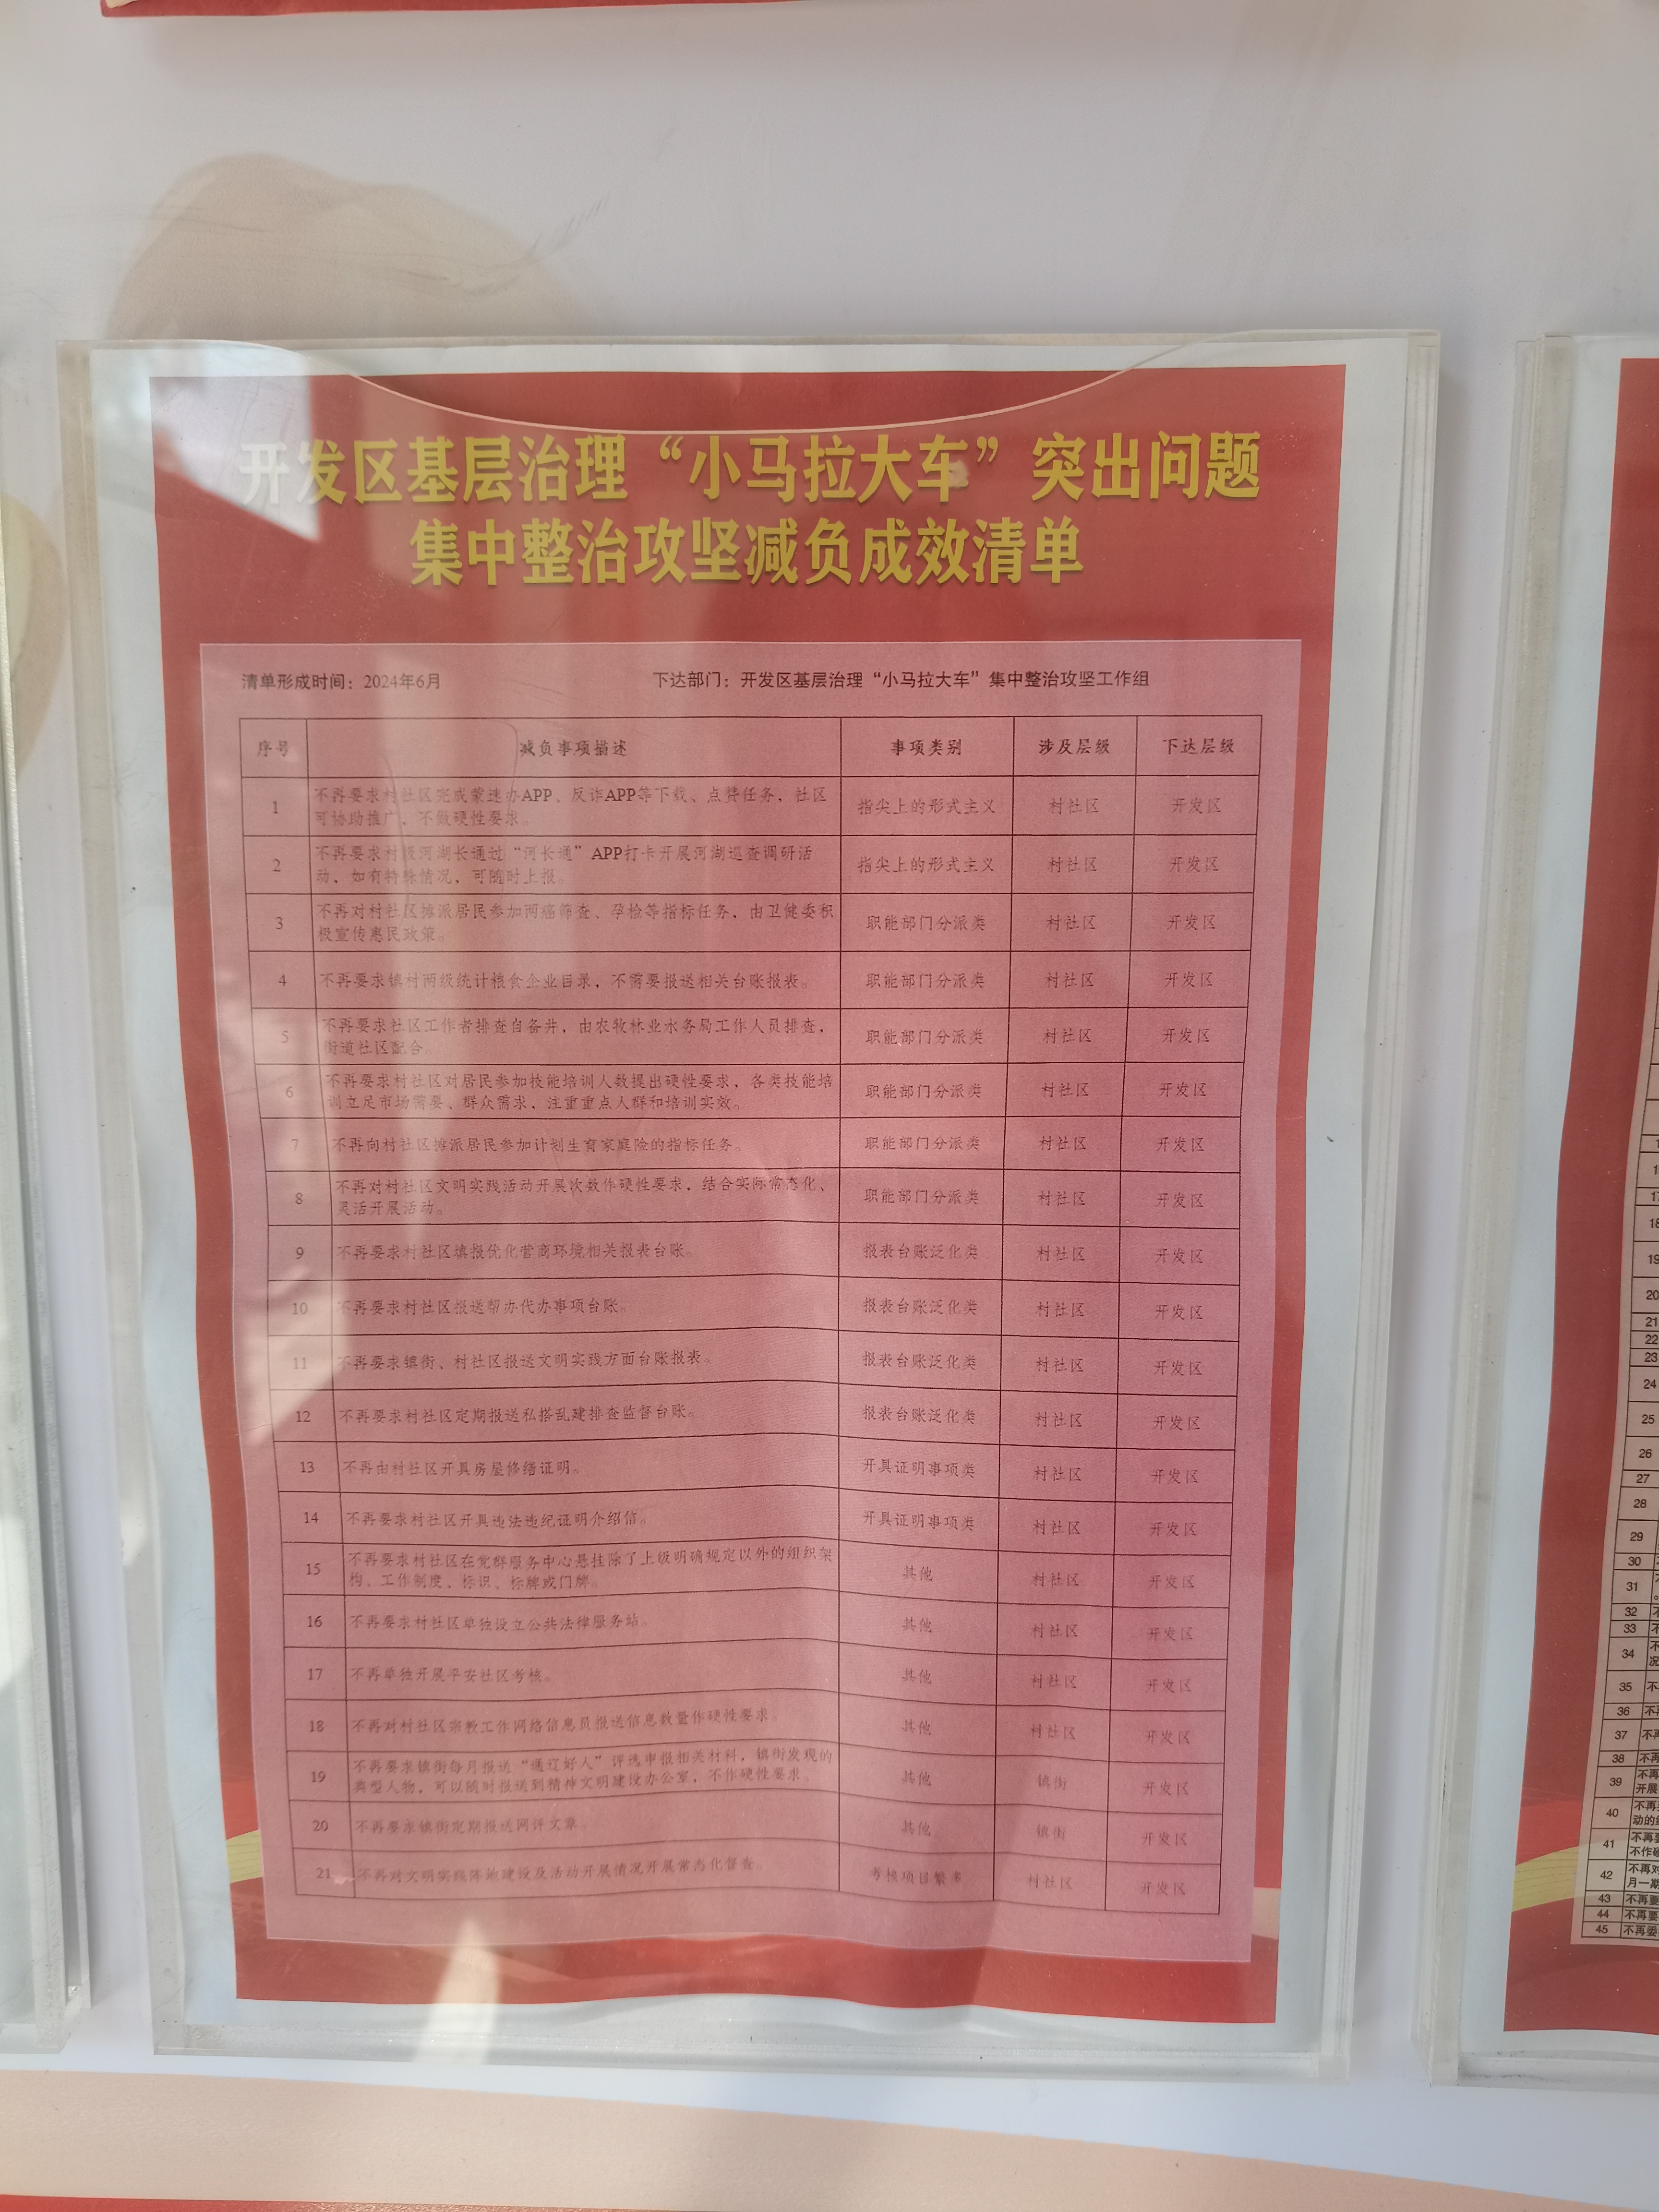 开发区基层治理“小马拉大车”突出问题
集中整治攻坚减负成效清单
清单形成时间：2024年6月 下达部门：开发区基层治理“小马拉大车”集中整治攻坚工作组
序号 减负事项描述 事项类别 涉及层级 下达层级
1 不再要求村社区完成蒙速办APP、反诈APP等下载、点赞任务，社区
可协助推广，不做硬性要求。 指尖上的形式主义 村社区 开发区
2 不再要求村级河湖长通过“河长通”APP打卡开展河湖巡查调研活
动，如有特殊情况，可随时上报。 指尖上的形式主义 村社区 开发区
3 不再对村社区摊派居民参加两癌筛查、孕检等指标任务，由卫健委积
极宣传惠民政策。 职能部门分派类 村社区 开发区
4 不再要求镇村两级统计粮食企业目录，不需要报送相关台账报表。 职能部门分派类 村社区 开发区
5 不再要求社区工作者排查自备井，由农牧林业水务局工作人员排查，
街道社区配合 职能部门分派类 村社区 开发区
6 不再要求村社区对居民参加技能培训人数提出硬性要求，各类技能培
训立足市场需要、群众需求，注重重点人群和培训实效。 职能部门分派类 村社区 开发区
7 不再向村社区摊派居民参加计划生育家庭险的指标任务。 职能部门分派类 村社区 开发区
8 不再对村社区文明实践活动开展次数作硬性要求，结合实际常态化、
灵活开展活动。 职能部门分派类 村社区 开发区
9 不再要求村社区填报优化营商环境相关报表台账。 报表台账泛化类 村社区 开发区
10 不再要求村社区报送帮办代办事项台账。 报表台账泛化类 村社区 开发区
11 不再要求镇街、村社区报送文明实践方面台账报表。 报表台账泛化类 村社区 开发区
12 不再要求村社区定期报送私搭乱建排查监督台账。 报表台账泛化类 村社区 开发区
13 不再由村社区开具房屋修缮证明。 开具证明事项类 村社区 开发区
14 不再要求村社区开具违法违纪证明介绍信。 开具证明事项类 村社区 开发区
15 不再要求村社区在党群服务中心悬挂除了上级明确规定以外的组织架
构、工作制度、标识、标牌或门牌。 其他 村社区 开发区
16 不再要求村社区单独设立公共法律服务站。 其他 村社区 开发区
17 不再单独开展平安社区考核。 其他 村社区 开发区
18 不再对村社区宗教工作网络信息员报送信息数量作硬性要求。 其他 村社区 开发区
19 不再要求镇街每月报送“通辽好人”评选申报相关材料，镇街发现的
典型人物，可以随时报送到精神文明建设办公室，不作硬性要求。 其他 镇街 开发区
20 不再要求镇街定期报送网评文章。 其他 镇街 开发区
21 不再对文明实践阵地建设及活动开展情况开展常态化督查。 考核项目繁多 村社区 开发区
18
19
20
21
22
23
24
25
26
27
28
29
30
31
32
33
34
35
36
37
38
39
开展
40
41
42
43
44
45